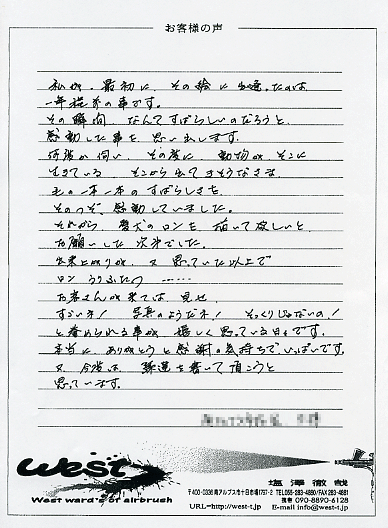 お客様の声
私が、最初に、その絵に出逢ったのは
一年程前の事です。
その瞬間、なんてすばらしいのだろうと、
感動した事を思い出します。
何度か伺い、その度に、動物がそこに
生きている、そこから出てきそうなさま
毛の一本一本のすばらしさを、
そのつど、感動していました。
それから、愛犬のロンを描いて欲しいと、
お願いした次第でした。
出来上がりが、又、思っていた以上で
ロン うりふたつ ……
お客さんが来ては、見せ、
すごいネ! 写真のようだネ! そっくりじゃないの!
と誉められる事が嬉しく思っている日々です。
本当に、ありがとうと感謝の気持ちでいっぱいです。
又、今度は、を書いて頂こうと
思っています。
west
West ward's of airbrush
塩澤徹哉
〒400-0336 南アルプス市十日市場1797-2 TEL055-283-4880/FAX283-4881
携帯 090-8890-6128
URL=http://west-t.jp E-mail info@west-t.jp